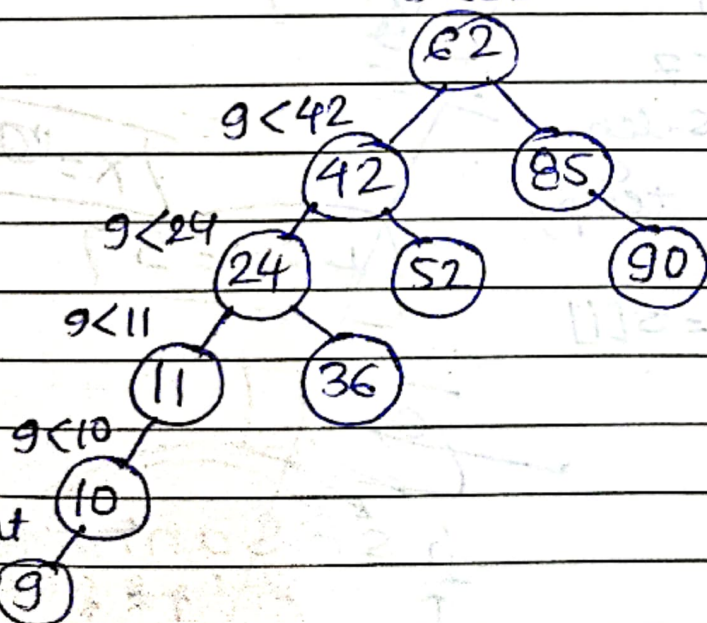 62
9<42
42
85
9<24
24
52
90
9<11
11
36
9<10
10
9